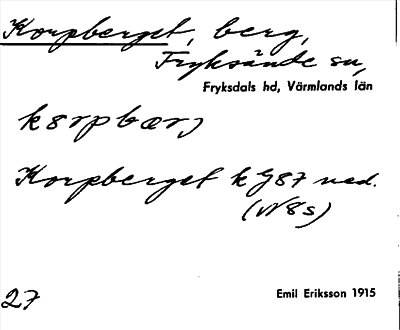 Korpberget, berg,
Fryksände sn,
Fryksdals hd, Värmlands län
Korpberget k G87 ned.
(N8s)
27
Emil Eriksson 1915